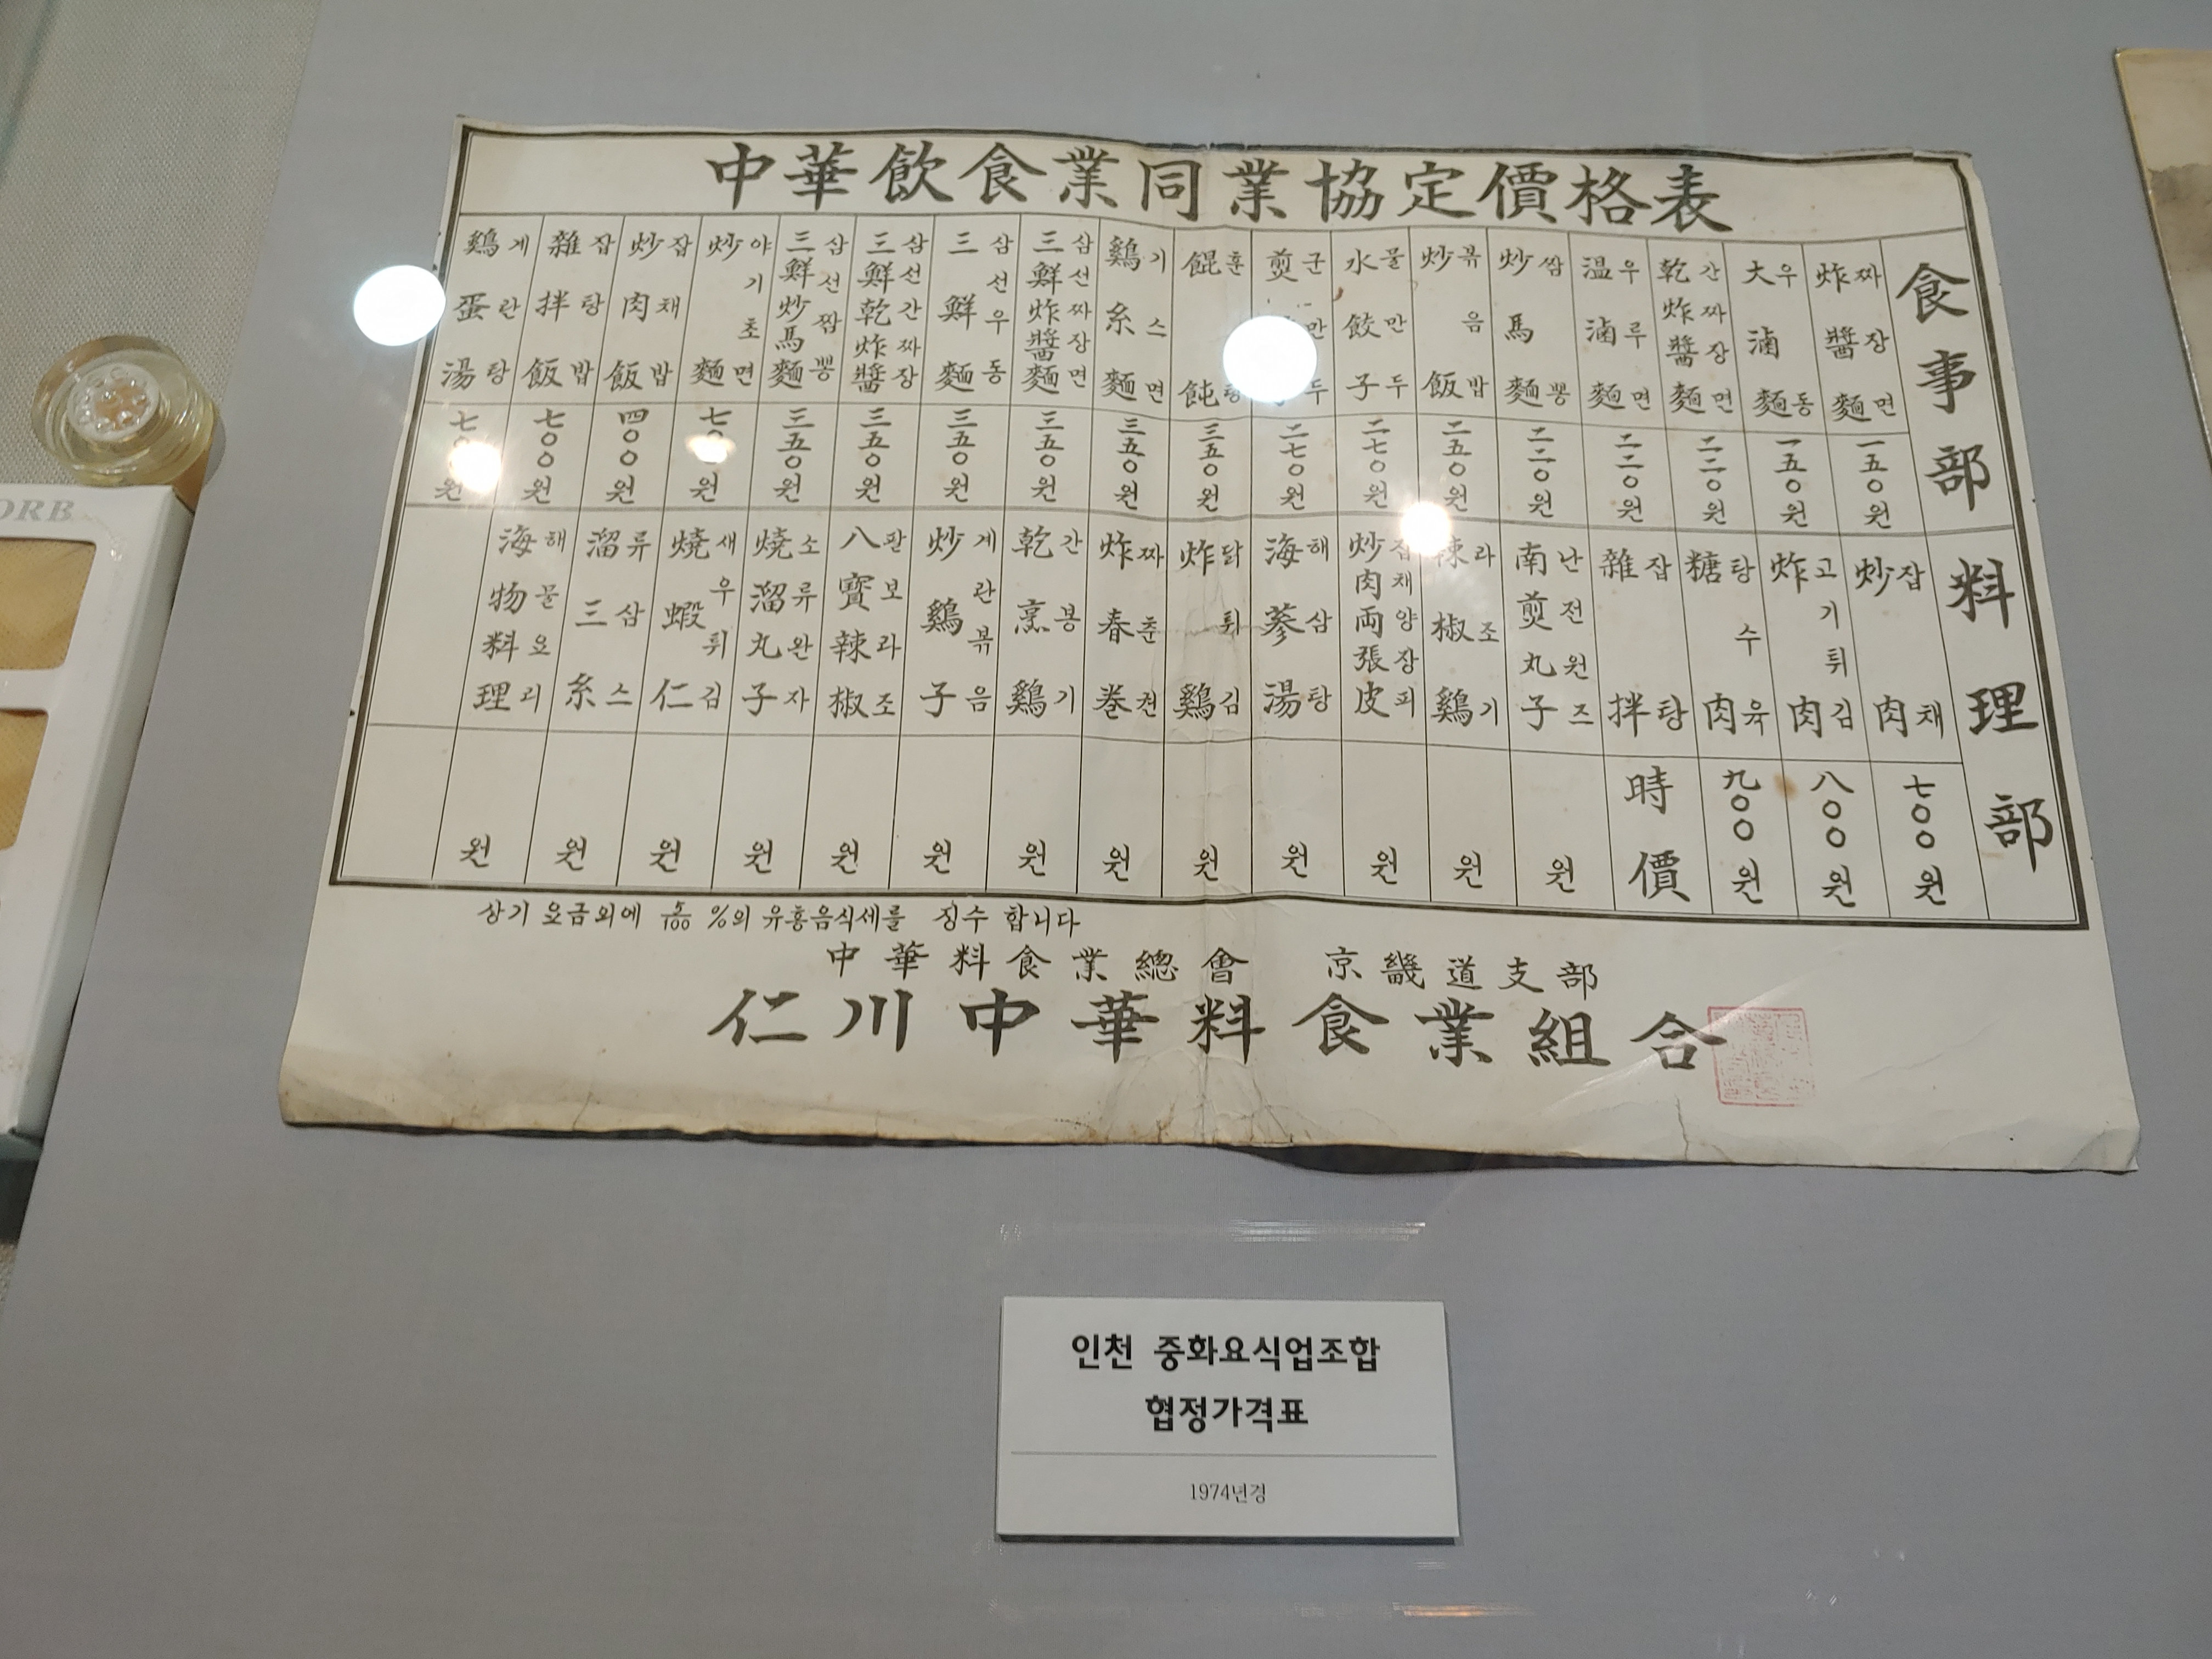 中華飮食業同業協定價格表
食事部
炸醬麵 짜장면 一五〇원
大滷麵 우동 一五〇원
乾炸醬麵 간짜장면 二二〇원
温滷麵 우루면 二二〇원
炒馬麵 짬뽕 二二〇원
炒飯 볶음밥 二五〇원
水餃子 물만두 二七〇원
煎 子 군만두 二七〇원
餛飩 훈탕 三五〇원
鷄糸麵 기스면 三五〇원
三鮮炸醬麵 삼선짜장면 三五〇원
三鮮麵 삼선우동 三五〇원
三鮮乾炸醬 삼선간짜장 三五〇원
三鮮炒馬麵 삼선짬뽕 三五〇원
炒麵 야기초면 七 〇원
炒肉飯 잡채밥 四〇〇원
雜拌飯 잡탕밥 七〇〇원
鷄蛋湯 계란탕 七 원
料理部
炒肉 잡채 七〇〇원
炸肉 고기튀김 八〇〇원
糖肉 탕수육 九〇〇원
雜拌 잡탕 時價
南煎丸子 난전원즈 원
辣椒鷄 라조기 원
炒肉両張皮 잡채양장피 원
海蔘湯 해삼탕 원
炸鷄 닭튀김 원
炸春巻 짜춘권 원
乾烹鷄 간봉기 원
炒鷄子 계란볶음 원
八寶辣椒 팔보라조 원
燒溜丸子 소류완자 원
燒蝦仁 새우튀김 원
溜三糸 류삼스 원
海物料理 해물요리 원
상기 요금외에 5/100 %의 유흥음식세를 징수 합니다
中華料食業總會 京畿道支部
仁川中華料食業組合
인천 중화요식업조합
협정가격표
1974년경
ORB